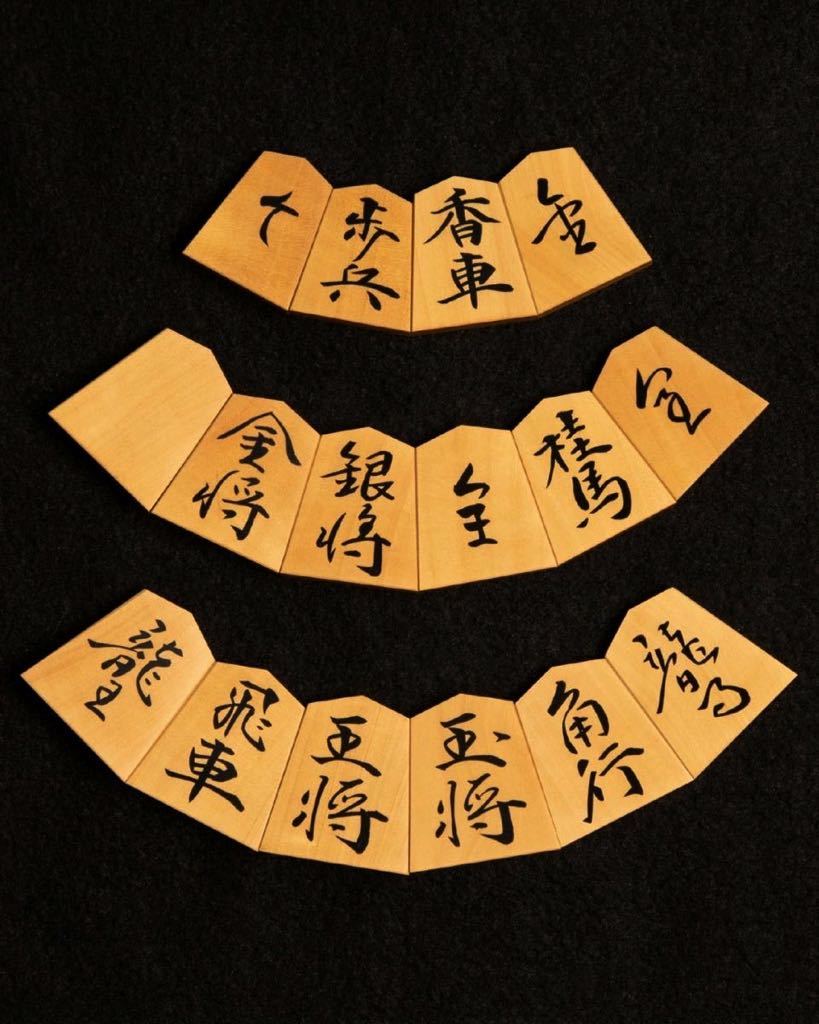 と
歩兵
香車
金将
銀将
全
桂馬
龍王
飛車
王将
玉将
角行
龍馬